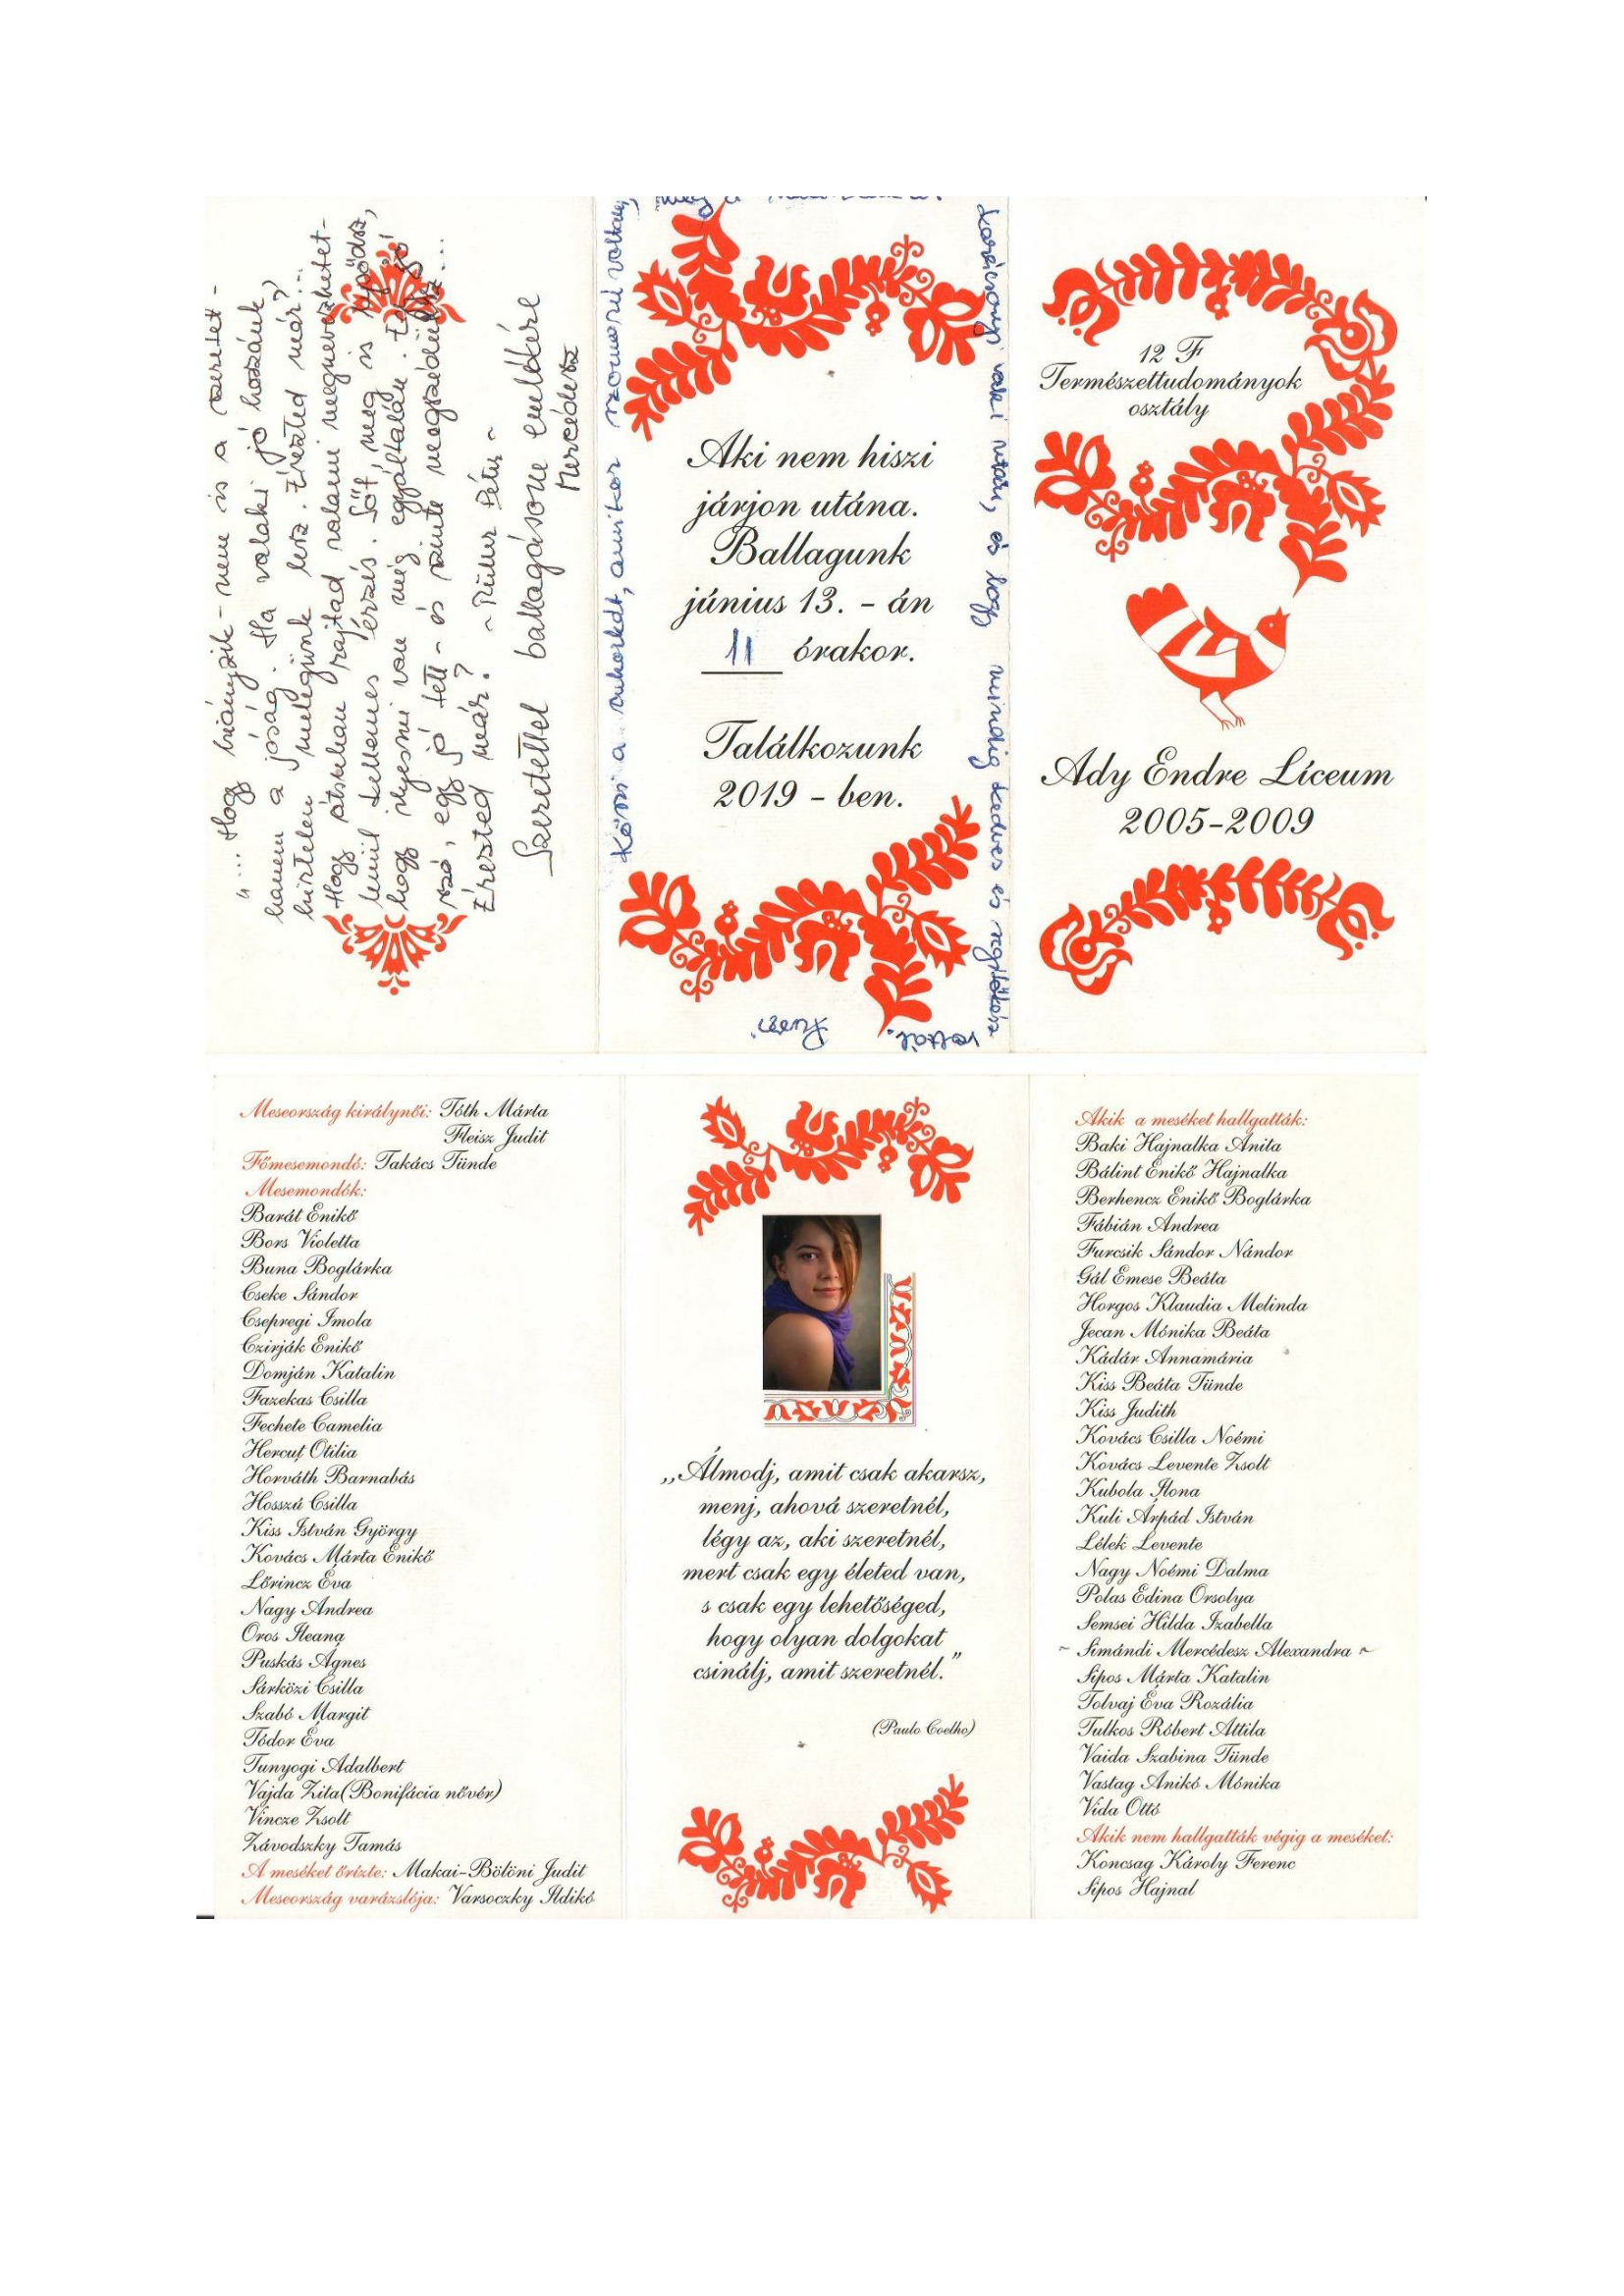 "... Hogy hiányzik - nem is a szeretet -
hanem a jóság. Ha valaki jó hozzánk,
hirtelen melegünk lesz. Érezted már?...
Hogy átsuhan rajtad valami megnevezhetet-
lenül kellemes érzés. Sőt, meg is lepődsz,
hogy ilyesmi van még egyáltalán. Egy jó
szó, egy jó tett - és szinte megszédülünk...
Érezted már? ~ Müller Péter ~
Szeretettel ballagásom emlékére
Mercédesz
Köszi a cukorkát, amikor szomorú voltam,
karácsonyi vásár után, és hogy mindig kedves és segítőkész
voltál.
Puszi
Aki nem hiszi
járjon utána.
Ballagunk
június 13. - án
11 órakor.
Találkozunk
2019 - ben.
12 F
Természettudományok
osztály
Ady Endre Líceum
2005-2009
Meseország királynői: Tóth Márta
Fleisz Judit
Főmesemondó: Takács Tünde
Mesemondók:
Barát Enikő
Bors Violetta
Buna Boglárka
Cseke Sándor
Csepregi Imola
Czirják Enikő
Domján Katalin
Fazekas Csilla
Fechete Camelia
Hercuţ Otilia
Horváth Barnabás
Hosszú Csilla
Kiss István György
Kovács Márta Enikő
Lőrincz Éva
Nagy Andrea
Oros Ileana
Puskás Ágnes
Sárközi Csilla
Szabó Margit
Tódor Éva
Tunyogi Adalbert
Vajda Zita(Bonifácia nővér)
Vincze Zsolt
Závodszky Tamás
A meséket őrizte: Makai-Bölöni Judit
Meseország varázslója: Varsoczky Ildikó
„Álmodj, amit csak akarsz,
menj, ahová szeretnél,
légy az, aki szeretnél,
mert csak egy életed van,
s csak egy lehetőséged,
hogy olyan dolgokat
csinálj, amit szeretnél.”
(Paulo Coelho)
Akik a meséket hallgatták:
Baki Hajnalka Anita
Bálint Enikő Hajnalka
Berhencz Enikő Boglárka
Fábián Andrea
Furcsik Sándor Nándor
Gál Emese Beáta
Horgos Klaudia Melinda
Jecan Mónika Beáta
Kádár Annamária
Kiss Beáta Tünde
Kiss Judith
Kovács Csilla Noémi
Kovács Levente Zsolt
Kubola Ilona
Kuli Árpád István
Lélek Levente
Nagy Noémi Dalma
Polas Edina Orsolya
Semsei Hilda Izabella
~ Simándi Mercédesz Alexandra ~
Sipos Márta Katalin
Tolvaj Éva Rozália
Tulkos Róbert Attila
Vaida Szabina Tünde
Vastag Anikó Mónika
Vida Ottó
Akik nem hallgatták végig a meséket:
Koncsag Károly Ferenc
Sipos Hajnal